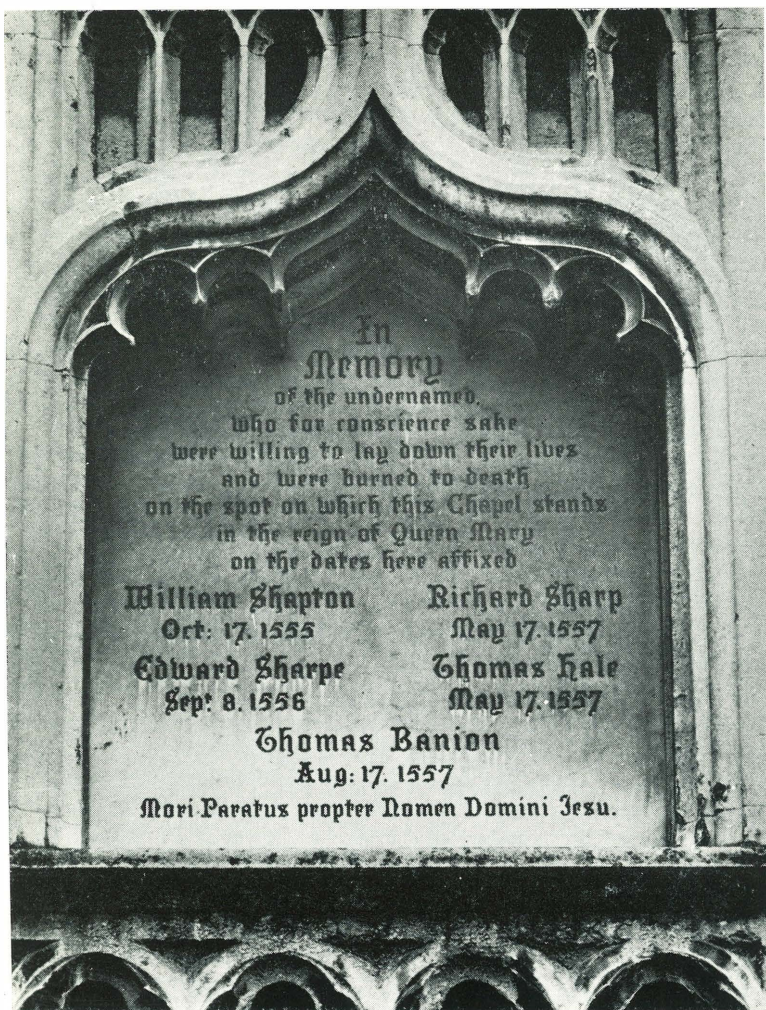 In
Memory
of the undernamed,
who for conscience sake
were willing to lay down their lives
and were burned to death
on the spot on which this Chapel stands
in the reign of Queen Mary
on the dates here affixed
William Shapton Richard Sharp
Oct: 17. 1555 May 17. 1557
Edward Sharpe Thomas Hale
Sept 8. 1556 May 17. 1557
Thomas Banion
Aug: 17. 1557
Mori Paratus propter Nomen Domini Jesu.